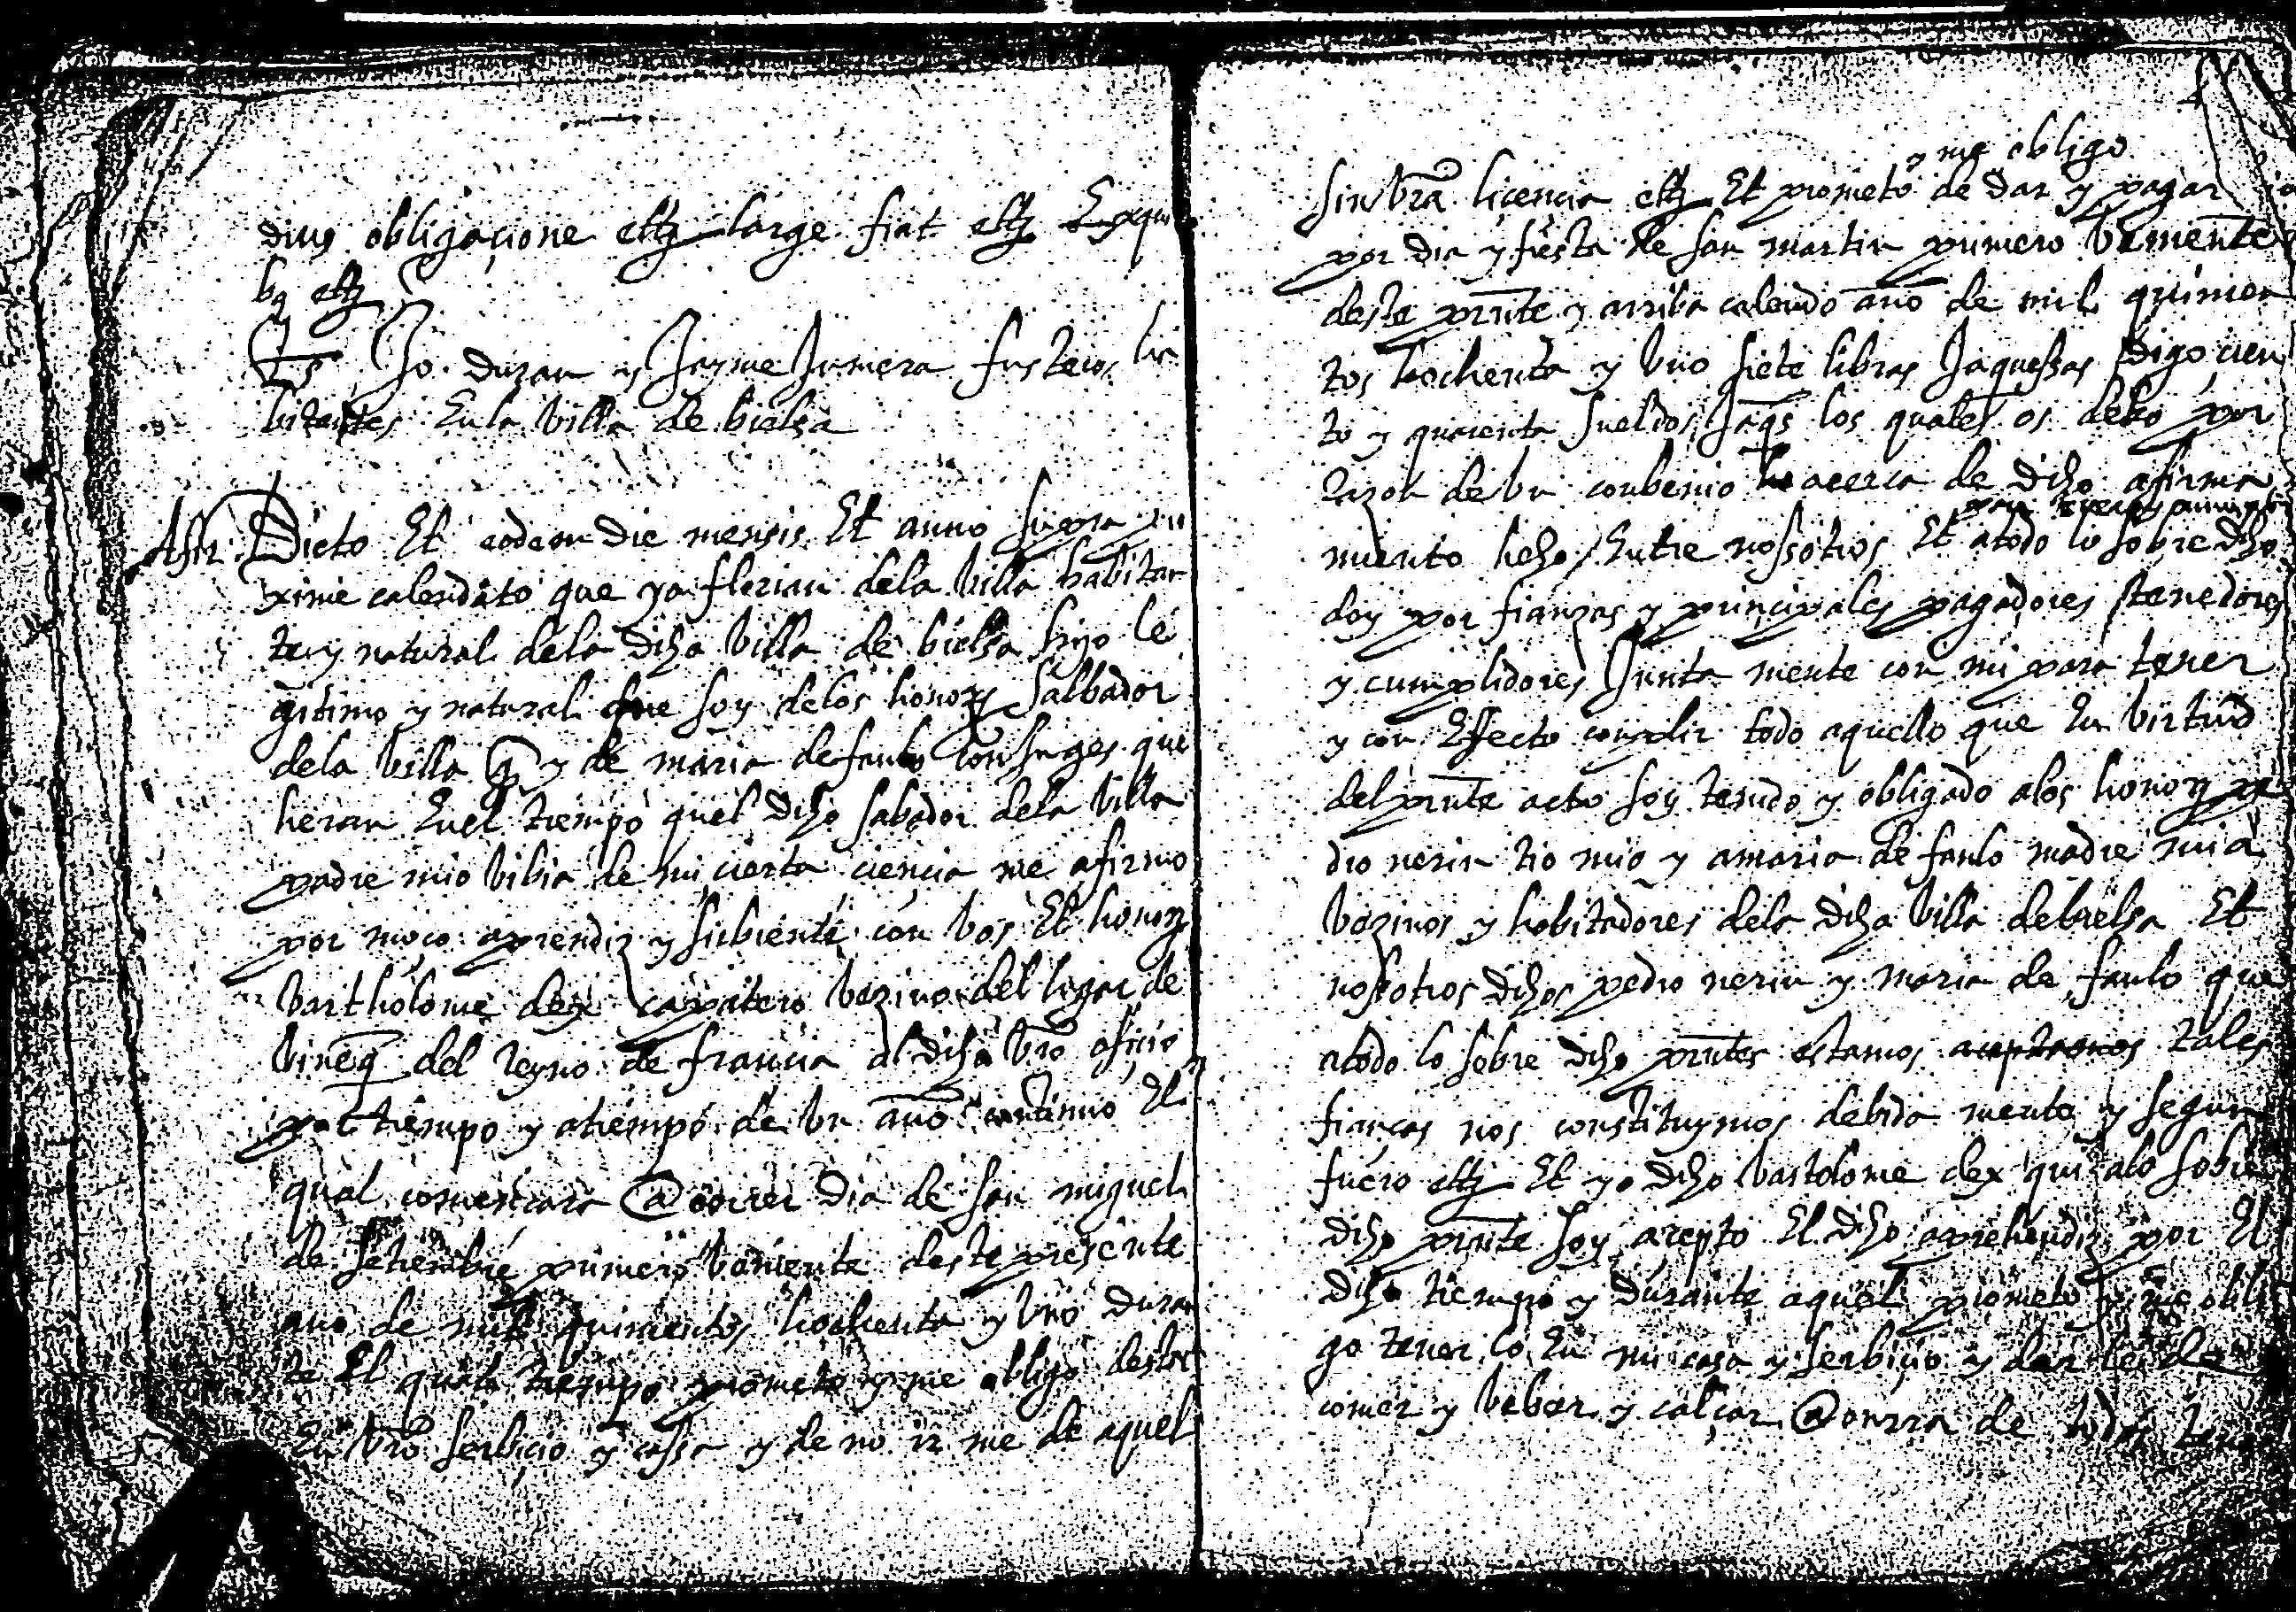 obligacione ettz large fiat ettz Ex quibus
bq ettz
Ts Jo. duran y Jayme Jumera fusteros ha
bitantes En la Villa de bielsa
Afir. Dicto Et eodem die mensis Et anno supra pro
xime calendato que yo florian dela Villa habitan
te y natural dela dicha Villa de bielsa hijo le
gitimo y natural que soy delos honorz Salbador
dela Villa q y de maria de fanlo conjuges que
heran Enel tiempo quel dicho salbador dela Villa
padre mio bibia de mi cierta ciencia me afirmo
por moço aprendiz y sirbiente con bos El honorz
bartholome dex çapatero Vezino del lugar de
del Reyno de francia al dicho bro oficio
por tiempo y atiempo de Un año continuo El
qual començara @ correr dia de san miguel
de setiembre primero Viniente deste presente
año de mil quinientos hochenta y Uno duran
te El qual tiempo prometo y me obligo de star
En bro serbicio y cassa y de no ir me de aquel
y me obligo
sin bra licencia ettz Et prometo de dar y pagar
por dia y fiesta de san martin primero biniente
deste prnte y arriba calendo año de mil quinien
tos hochenta y Uno siete libras Jaquessas digo cien
to y quarenta sueldos Jaqs los quales os debo por
Razon de Un conbenio acerca de dicho afirma
miento hecho Entre nossotros Et atodo lo sobre dicho
doy por fianzas y principales pagadores tenedores
y cumplidores Junta mente con mi para tener
y con Effecto complir todo aquello que En birtud
del prnte acto soy tenido y obligado alos honorz pe
dro nerin tio mio y amaria de fanlo madre mia
bezinos y habitadores dela dicha Villa de bielsa Et
nosotros dichos pedro nerin y maria de fanlo que
atodo lo sobre dicho prntes estamos aceptamos tales
fianças nos constituymos debida mente y segun
fuero ettz Et yo dicho bartolome dex qui alo sobre
dicho prnte soy acepto El dicho aprehendiz por El
dicho tiempo y durante aquel prometo y me obli
go tener lo En mi casa y serbicio y dar le de
comer y beber y calçar @onrra de todas